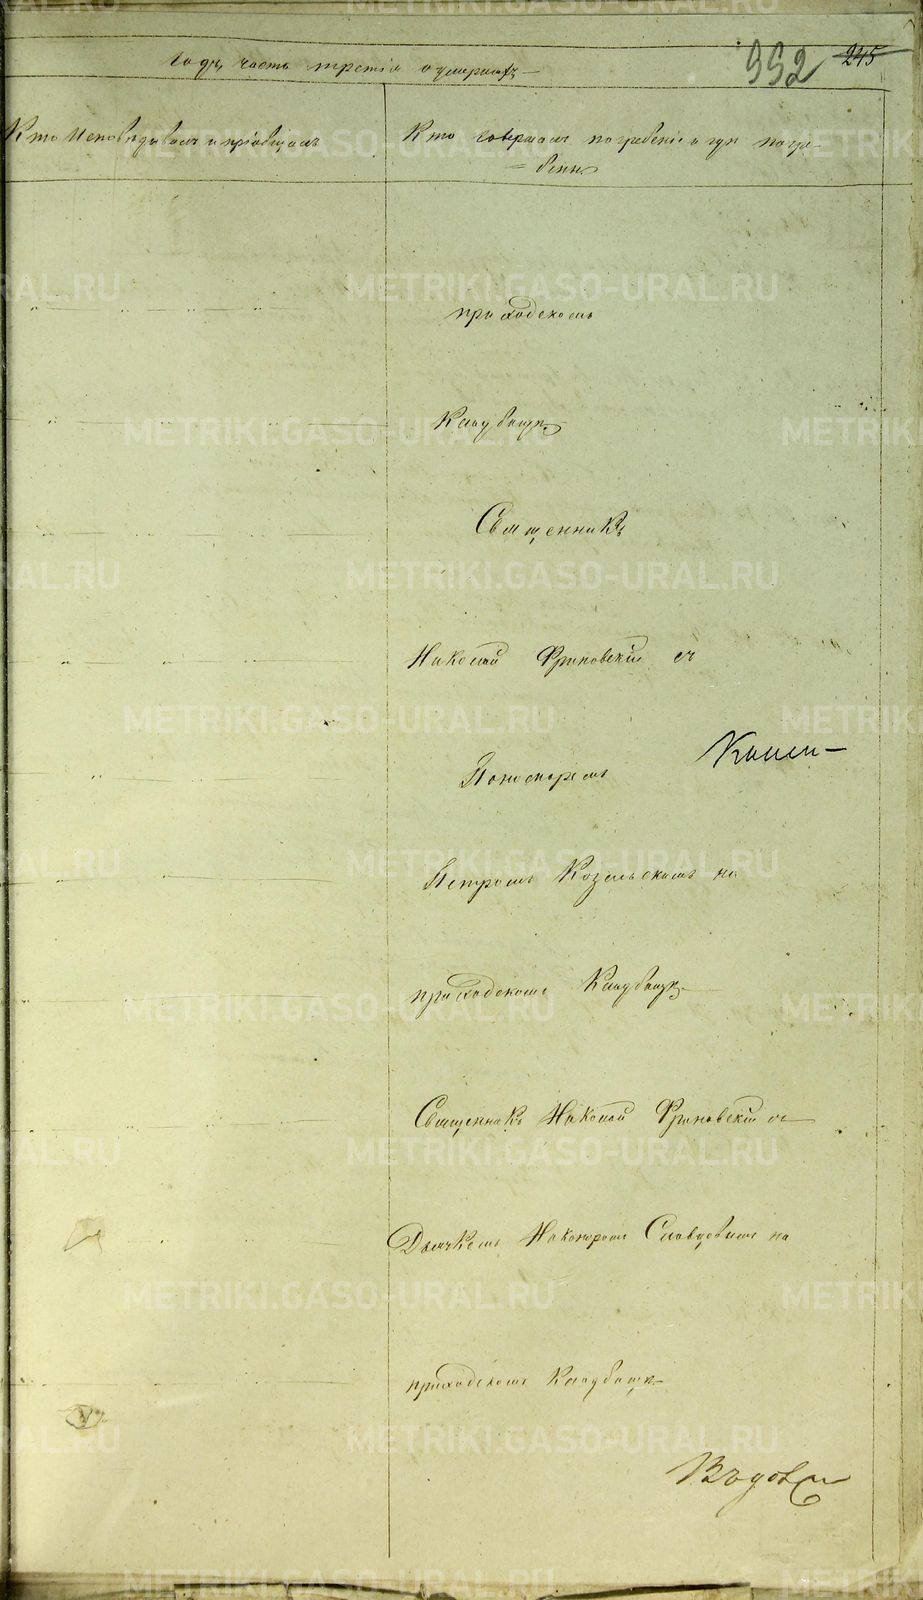 годъ часть третiя о умершихъ
992 245
Кто Исповѣдывалъ и прiобщалъ
Кто совершалъ погребенiе и гдѣ погре-
бенны
приходскомъ
Кладбищѣ
Священникъ
Николай Фриновскiй съ
Пономаремъ
Петромъ Козельскимъ на
приходскомъ Кладбищѣ
Священникъ Николай Фриновскiй съ
Дьячкомъ Никаноромъ Словцовымъ на
приходскомъ Кладбищѣ
METRIKI.GASO-URAL.RU